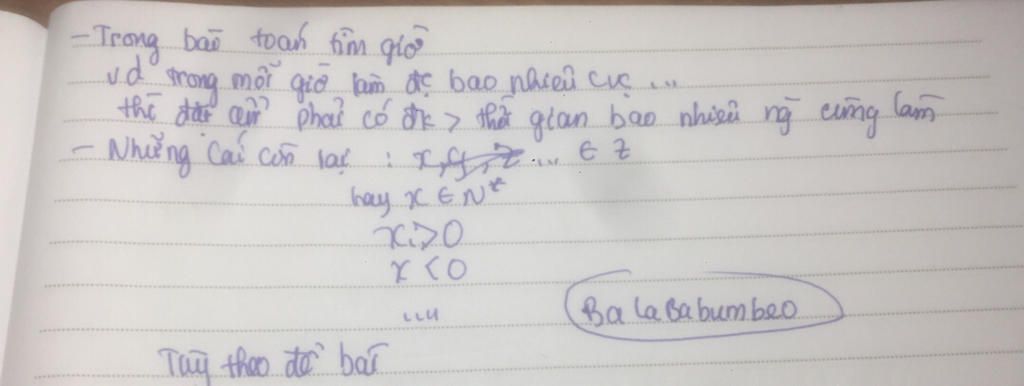 - Trong bài toán tìm giờ
vd trong mỗi giờ làm đc bao nhiêu cục ...
thì phải có đk > thời gian bao nhiêu ng cùng làm
- Những cái còn lại : x, y, z ... ∈ Z
hay x ∈ N*
x > 0
x < 0
....
BaLaBabumbeo
Tùy theo đề bài